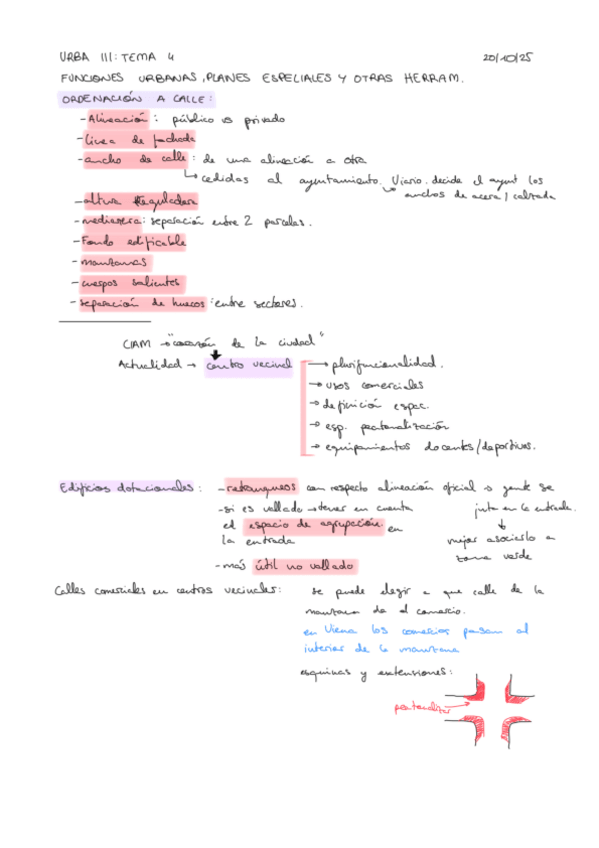 URBA III: TEMA 4
20/10/25
FUNCIONES URBANAS, PLANES ESPECIALES Y OTRAS HERRAM.
ORDENACIÓN A CALLE:
- Alineación: público vs privado
- línea de fachada
- ancho de calle: de una alineación a otra
cedidas al ayuntamiento. Viario. decide el ayunt los
anchos de acera / calzada
- altura Reguladora
- medianera: separación entre 2 parcelas.
- Fondo edificable
- manzanas
- cuerpos salientes
- separación de huecos: entre sectores.
CIAM → "corazón de la ciudad"
Actualidad → centro vecinal
→ plurifuncionalidad.
→ usos comerciales
→ definición espac.
→ esp. peatonalización
→ equipamientos docentes/deportivos.
Edificios dotacionales:
- retranqueos con respecto alineación oficial → gente se
junta en la entrada.
- si es vallado → tener en cuenta
el espacio de agrupación. en
la entrada
mejor asociarlo a
zona verde
- más útil no vallado
Calles comerciales en centros vecinales:
se puede elegir a que calle de la
manzana da el comercio.
en Viena los comercios pasan al
interior de la manzana
esquinas y extensiones:
peatonalizar